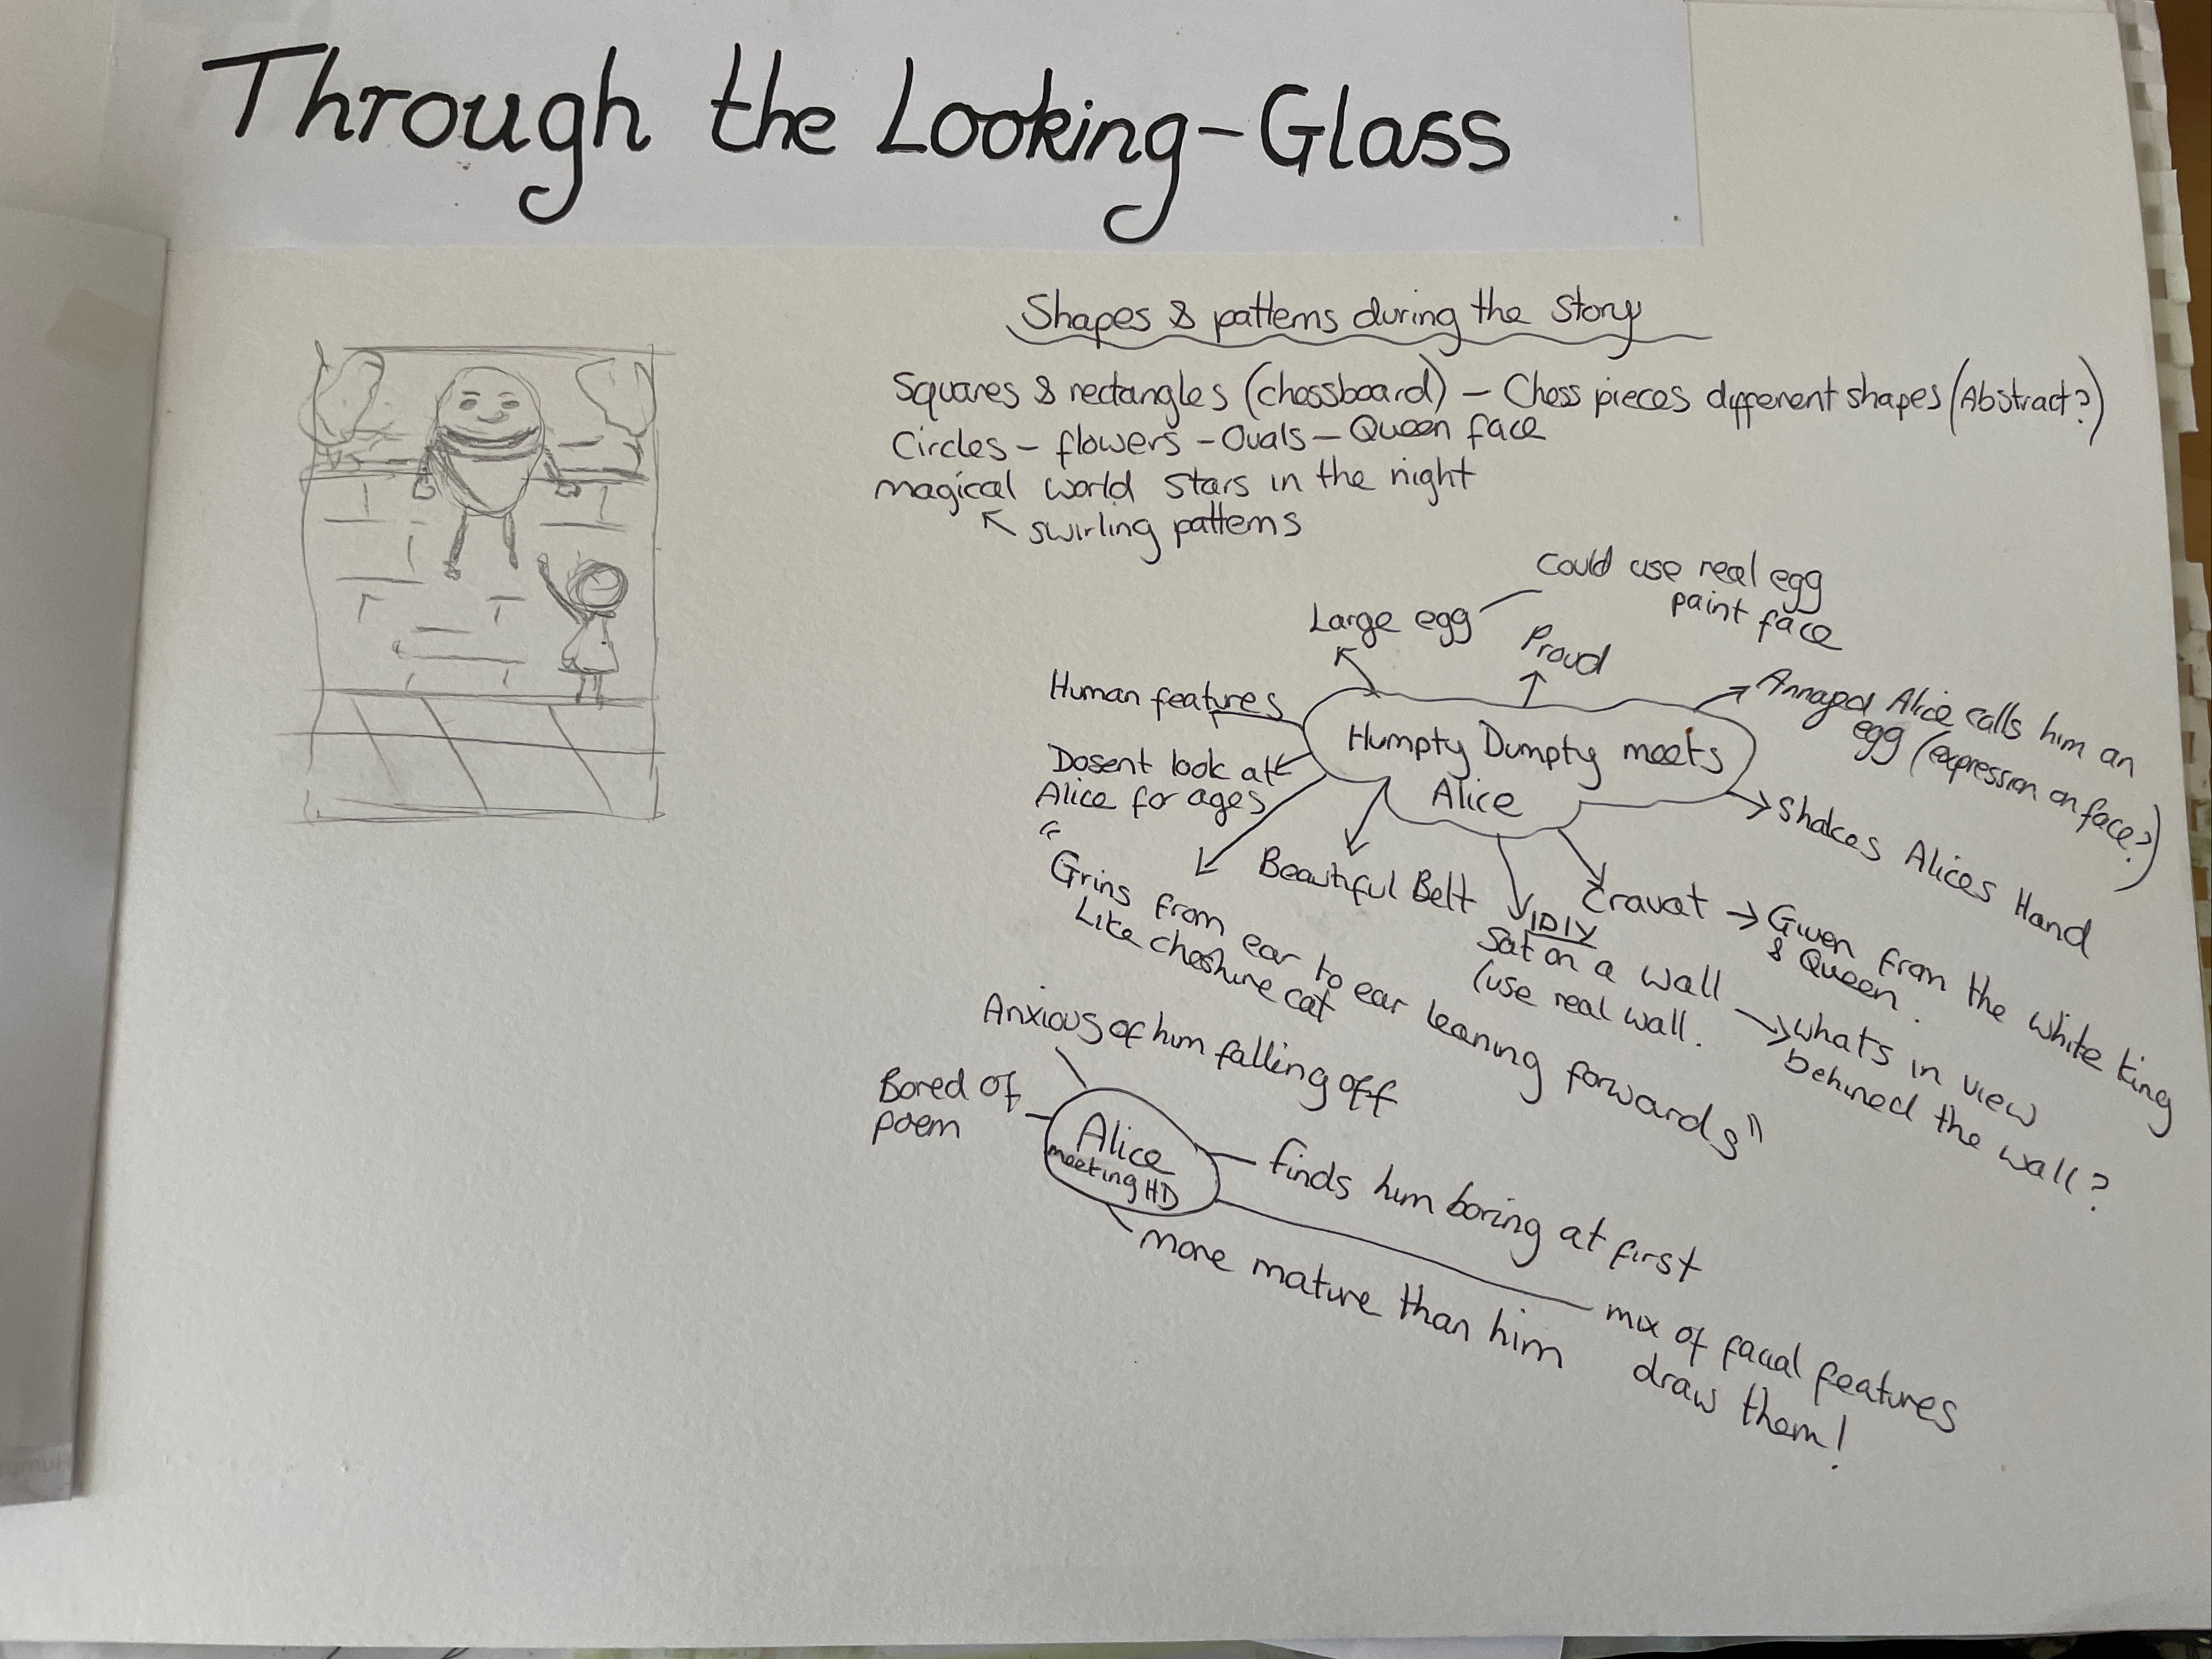 Through the Looking-Glass
Shapes & patterns during the Story
Squares & rectangles (chessboard) – Chess pieces different shapes (Abstract?)
Circles – flowers – Ovals – Queen face
magical world stars in the night
swirling patterns
Could use real egg
paint face
Large egg
Proud
Human features
Annoyed Alice calls him an
egg (expression on face?)
Humpty Dumpty meets
Alice
Dosent look at
Alice for ages
Shakes Alices Hand
Beautiful Belt
Cravat → Given from the white king
& Queen.
"Grins from ear to ear leaning forwards"
Like cheshire cat
DIY
Sat on a wall
(use real wall.
whats in view
behined the wall?
Anxious of him falling off
Bored of
poem
Alice
meeting HD
finds him boring at first
more mature than him
mix of facial features
draw them!